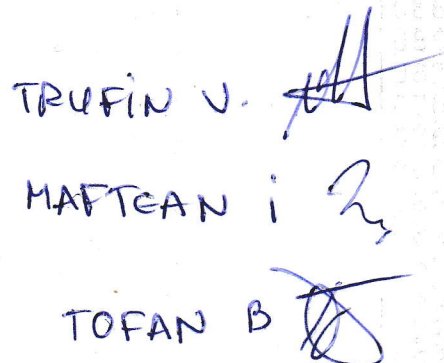 TRUFiN V.
MAFTEAN i
TOFAN B